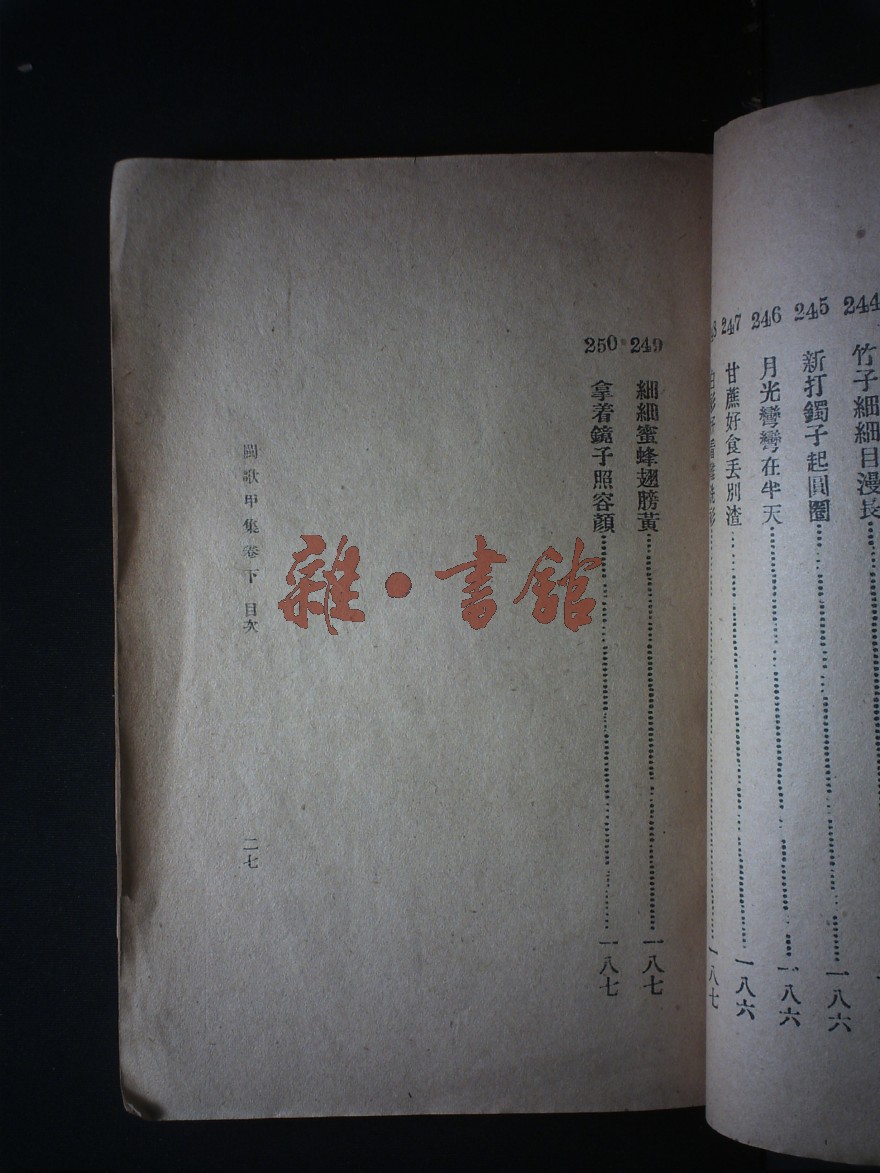 244 竹子細細目漫長
245 新打鐲子起圓圈……一八六
246 月光彎彎在半天……一八六
247 甘蔗好食丟別渣……一八六
一八七
249 細細蜜蜂翅膀黃……一八七
250 拿着鏡子照容顏……一八七
閩歌甲集卷下 目次
二七
雜·書館